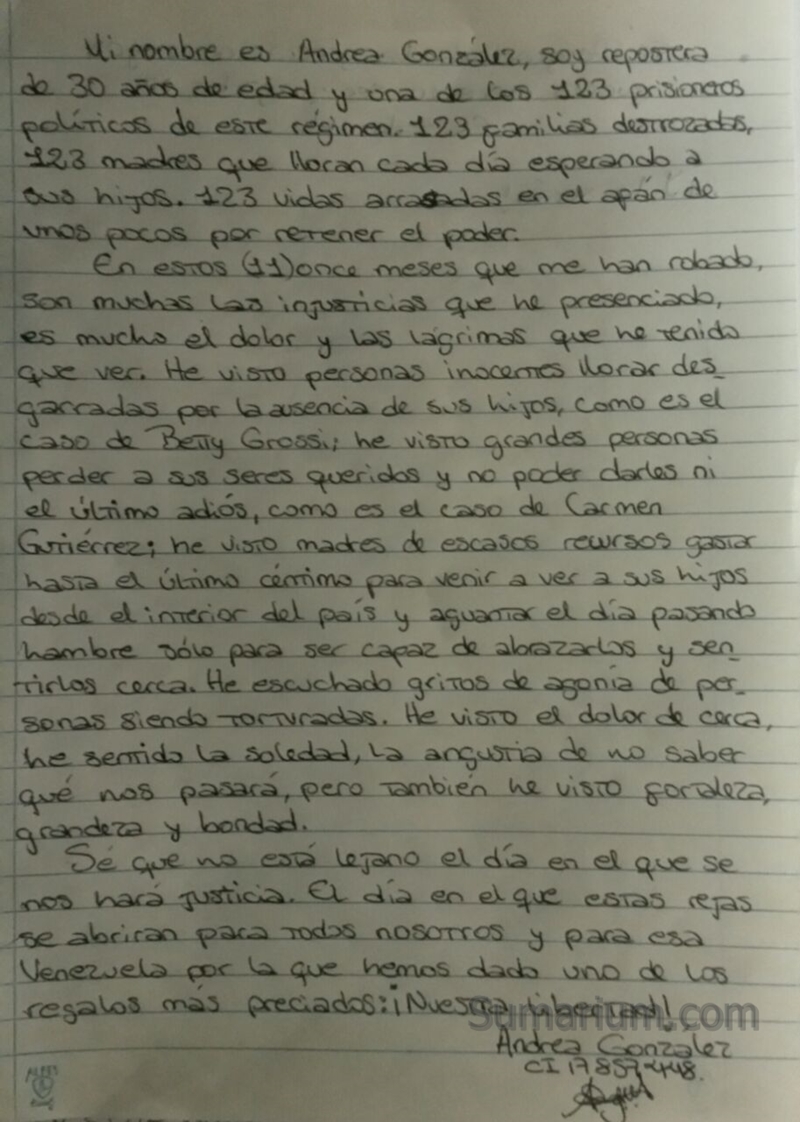 Mi nombre es Andrea González, soy repostera
de 30 años de edad y una de los 123 prisioneros
políticos de este régimen. 123 familias destrozadas,
123 madres que lloran cada día esperando a
sus hijos. 123 vidas arrasadas en el afán de
unos pocos por retener el poder.
En estos (11) once meses que me han robado,
son muchas las injusticias que he presenciado,
es mucho el dolor y las lágrimas que he tenido
que ver. He visto personas inocentes llorar des_
garradas por la ausencia de sus hijos, como es el
caso de Betty Grossi; he visto grandes personas
perder a sus seres queridos y no poder darles ni
el último adiós, como es el caso de Carmen
Gutiérrez; he visto madres de escasos recursos gastar
hasta el último céntimo para venir a ver a sus hijos
desde el interior del país y aguantar el día pasando
hambre sólo para ser capaz de abrazarlos y sen_
tirlos cerca. He escuchado gritos de agonía de per_
sonas siendo torturadas. He visto el dolor de cerca,
he sentido la soledad, la angustia de no saber
qué nos pasará, pero también he visto fortaleza,
grandeza y bondad.
Sé que no está lejano el día en el que se
nos hará justicia. El día en el que estas rejas
se abriran para todos nosotros y para esa
Venezuela por la que hemos dado uno de los
regalos más preciados: ¡Nuestra libertad!
Sumarium.com
Andrea González
CI 17.857.448.